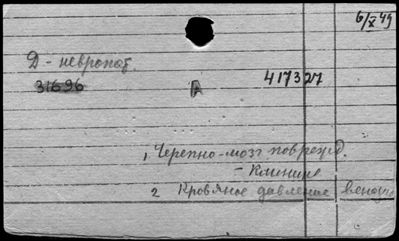 6/X 49
Д - невропат.
31696 А 417327
1, Черепно-мозг поврежд.
- Клиника
2 Кровяное давление веноз